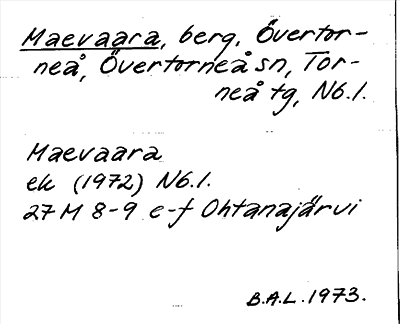 Maevaara, berg, Övertor-
neå, Övertorneå sn, Tor-
neå tg, Nb.l.
Maevaara
ek (1972) Nb.l.
27 M 8-9 e-f Ohtanajärvi
B.A.L. 1973.